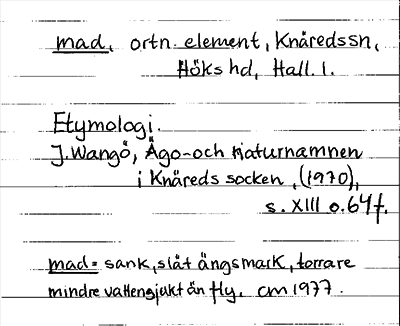 mad, ortn. element, Knäredssn,
Höks hd, Hall. l.
Etymologi.
J. Wangö, Ägo- och naturnamnen
i Knäreds socken, (1970),
s. XIII o. 64 f.
mad = sank, slåt ängsmark, torrare
mindre vattensjukt än fly. cm 1977.